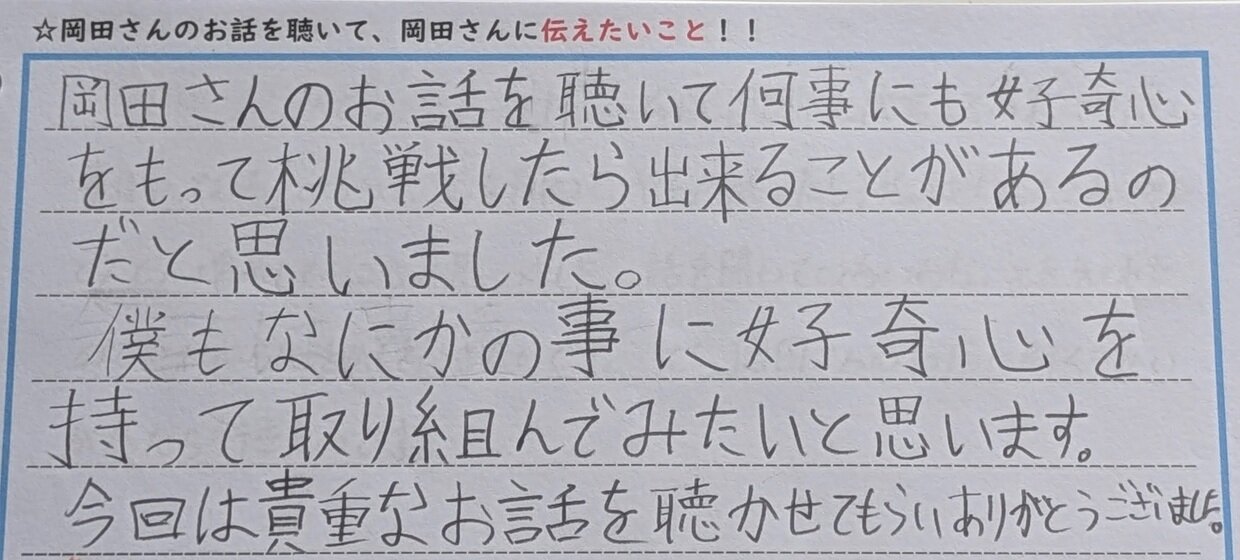 ☆岡田さんのお話を聴いて、岡田さんに伝えたいこと！！
岡田さんのお話を聴いて何事にも好奇心
をもって挑戦したら出来ることがあるの
だと思いました。
僕もなにかの事に好奇心を
持って取り組んでみたいと思います。
今回は貴重なお話を聴かせてもらいありがとうございました。